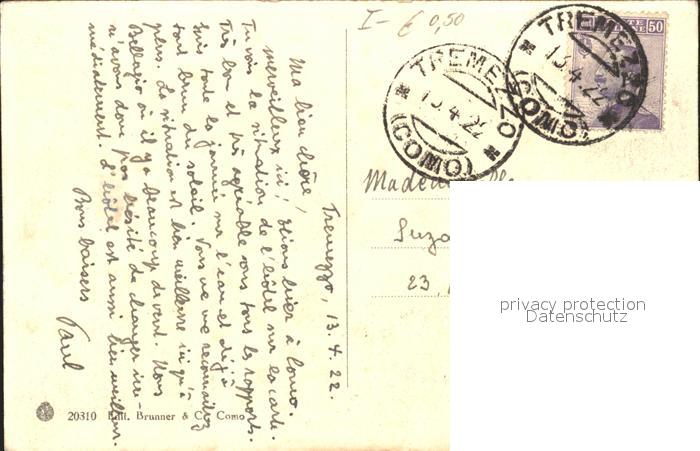 I- € 0,50
TREMEZZO
13.4.22
(COMO)
TREMEZZO
13.4.22
(COMO)
50
Tremezzo, 13.4.22.
Ma bien chère,
merveilleux ici! Etions hier à Como.
Tu vois la situation de l'hôtel sur la carte.
Très bon et très agréable sous tous les rapports.
Suis toute la journée sur l'eau et déjà
tout brun du soleil. Vous ne me reconnaîtrez
plus. La situation est bien meilleure ici qu'à
Bellagio où il y a beaucoup de vent. Nous
n'avons donc pas hésité de changer im-
médiatement. L'hôtel est aussi bien meilleur.
Bons baisers
Paul
Suza
23
20310 Edit. Brunner & C. Como
privacy protection
Datenschutz